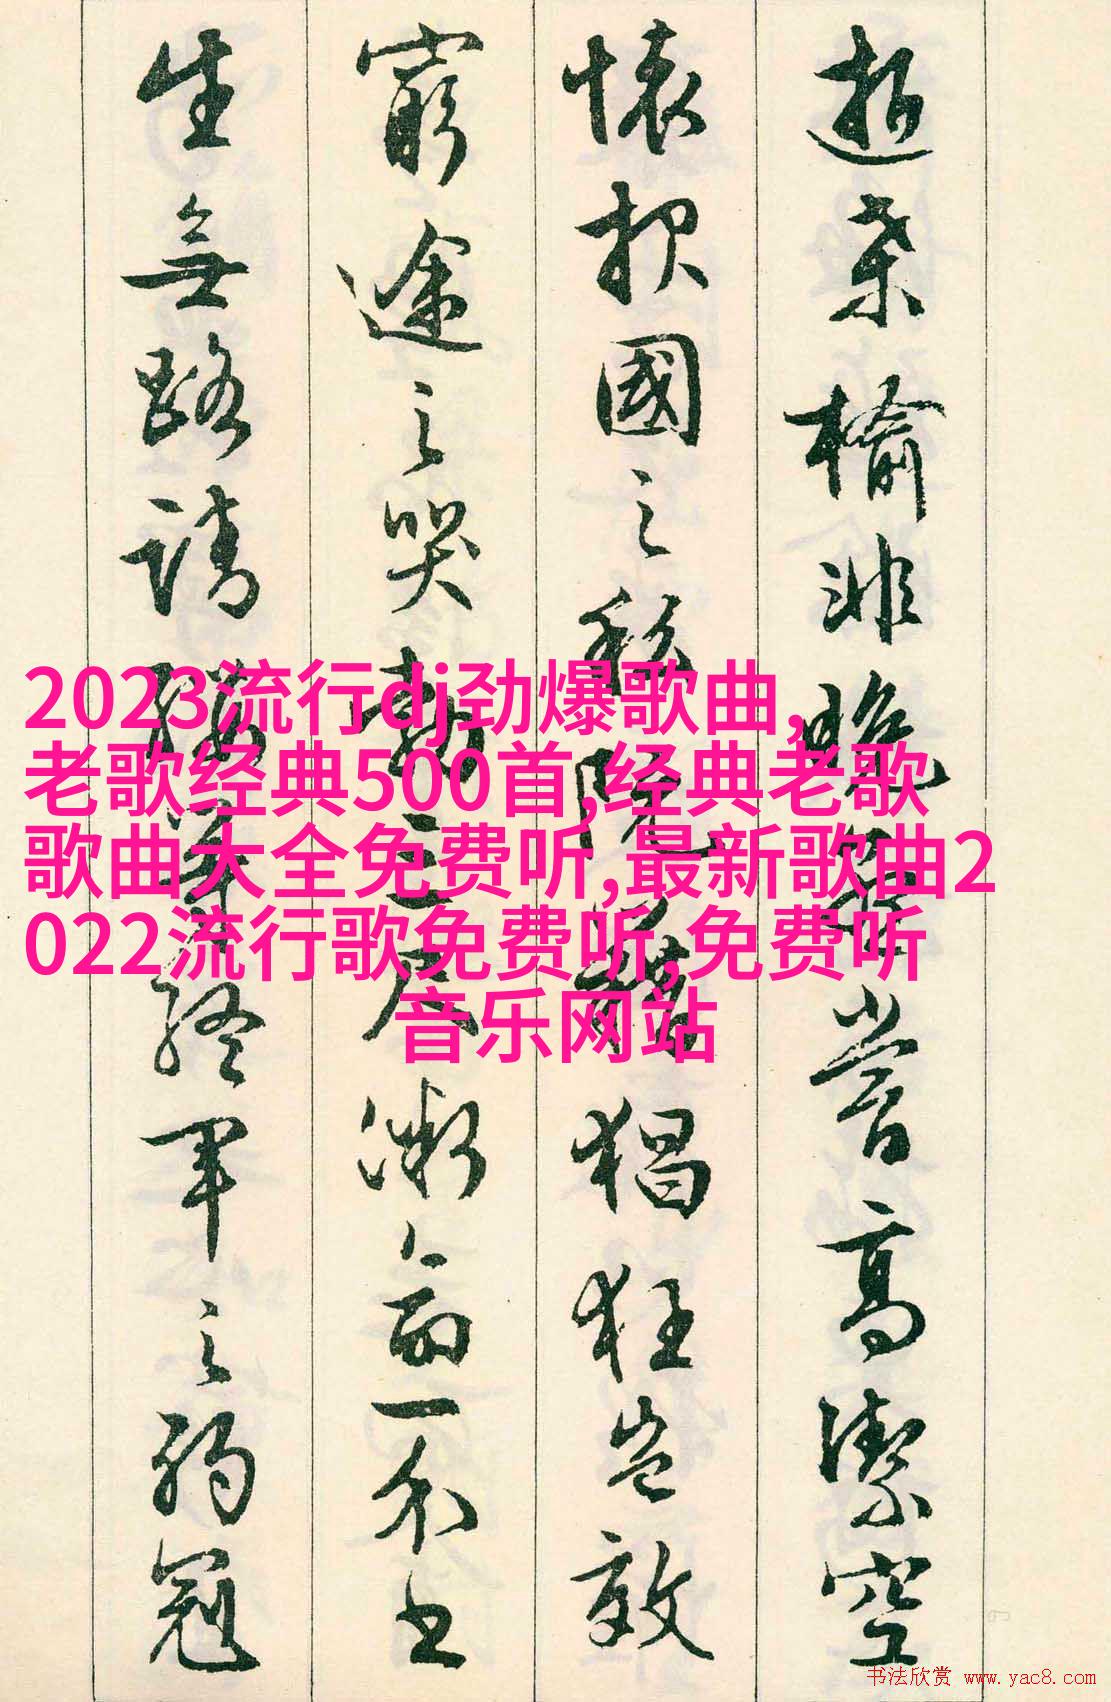 逝桑榆非晚孟嘗高潔空
懷报國之阮藉猖狂豈效
窮途之哭勃三尺微命一介書
生無路請纓等終軍之弱冠
2023流行dj劲爆歌曲,
老歌经典500首,经典老歌
歌曲大全免费听,最新歌曲2
022流行歌免费听,免费听
音乐网站
书法欣赏 www.yac8.com